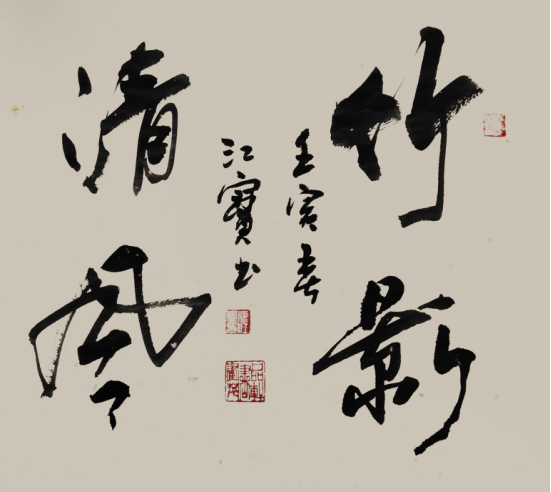 竹影
清风
壬寅春
江宝书